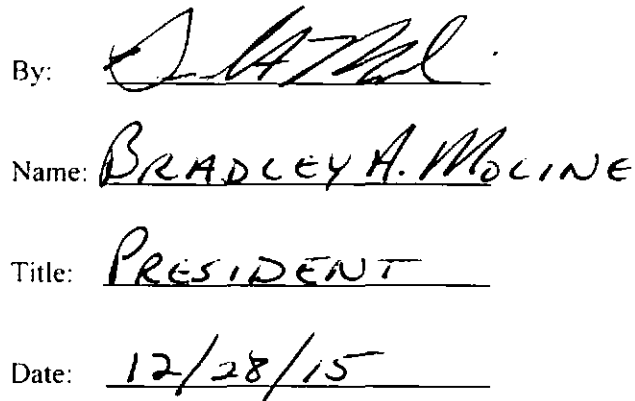 By:
Name: BRADLEY A. MOLINE
Title: PRESIDENT
Date: 12/28/15